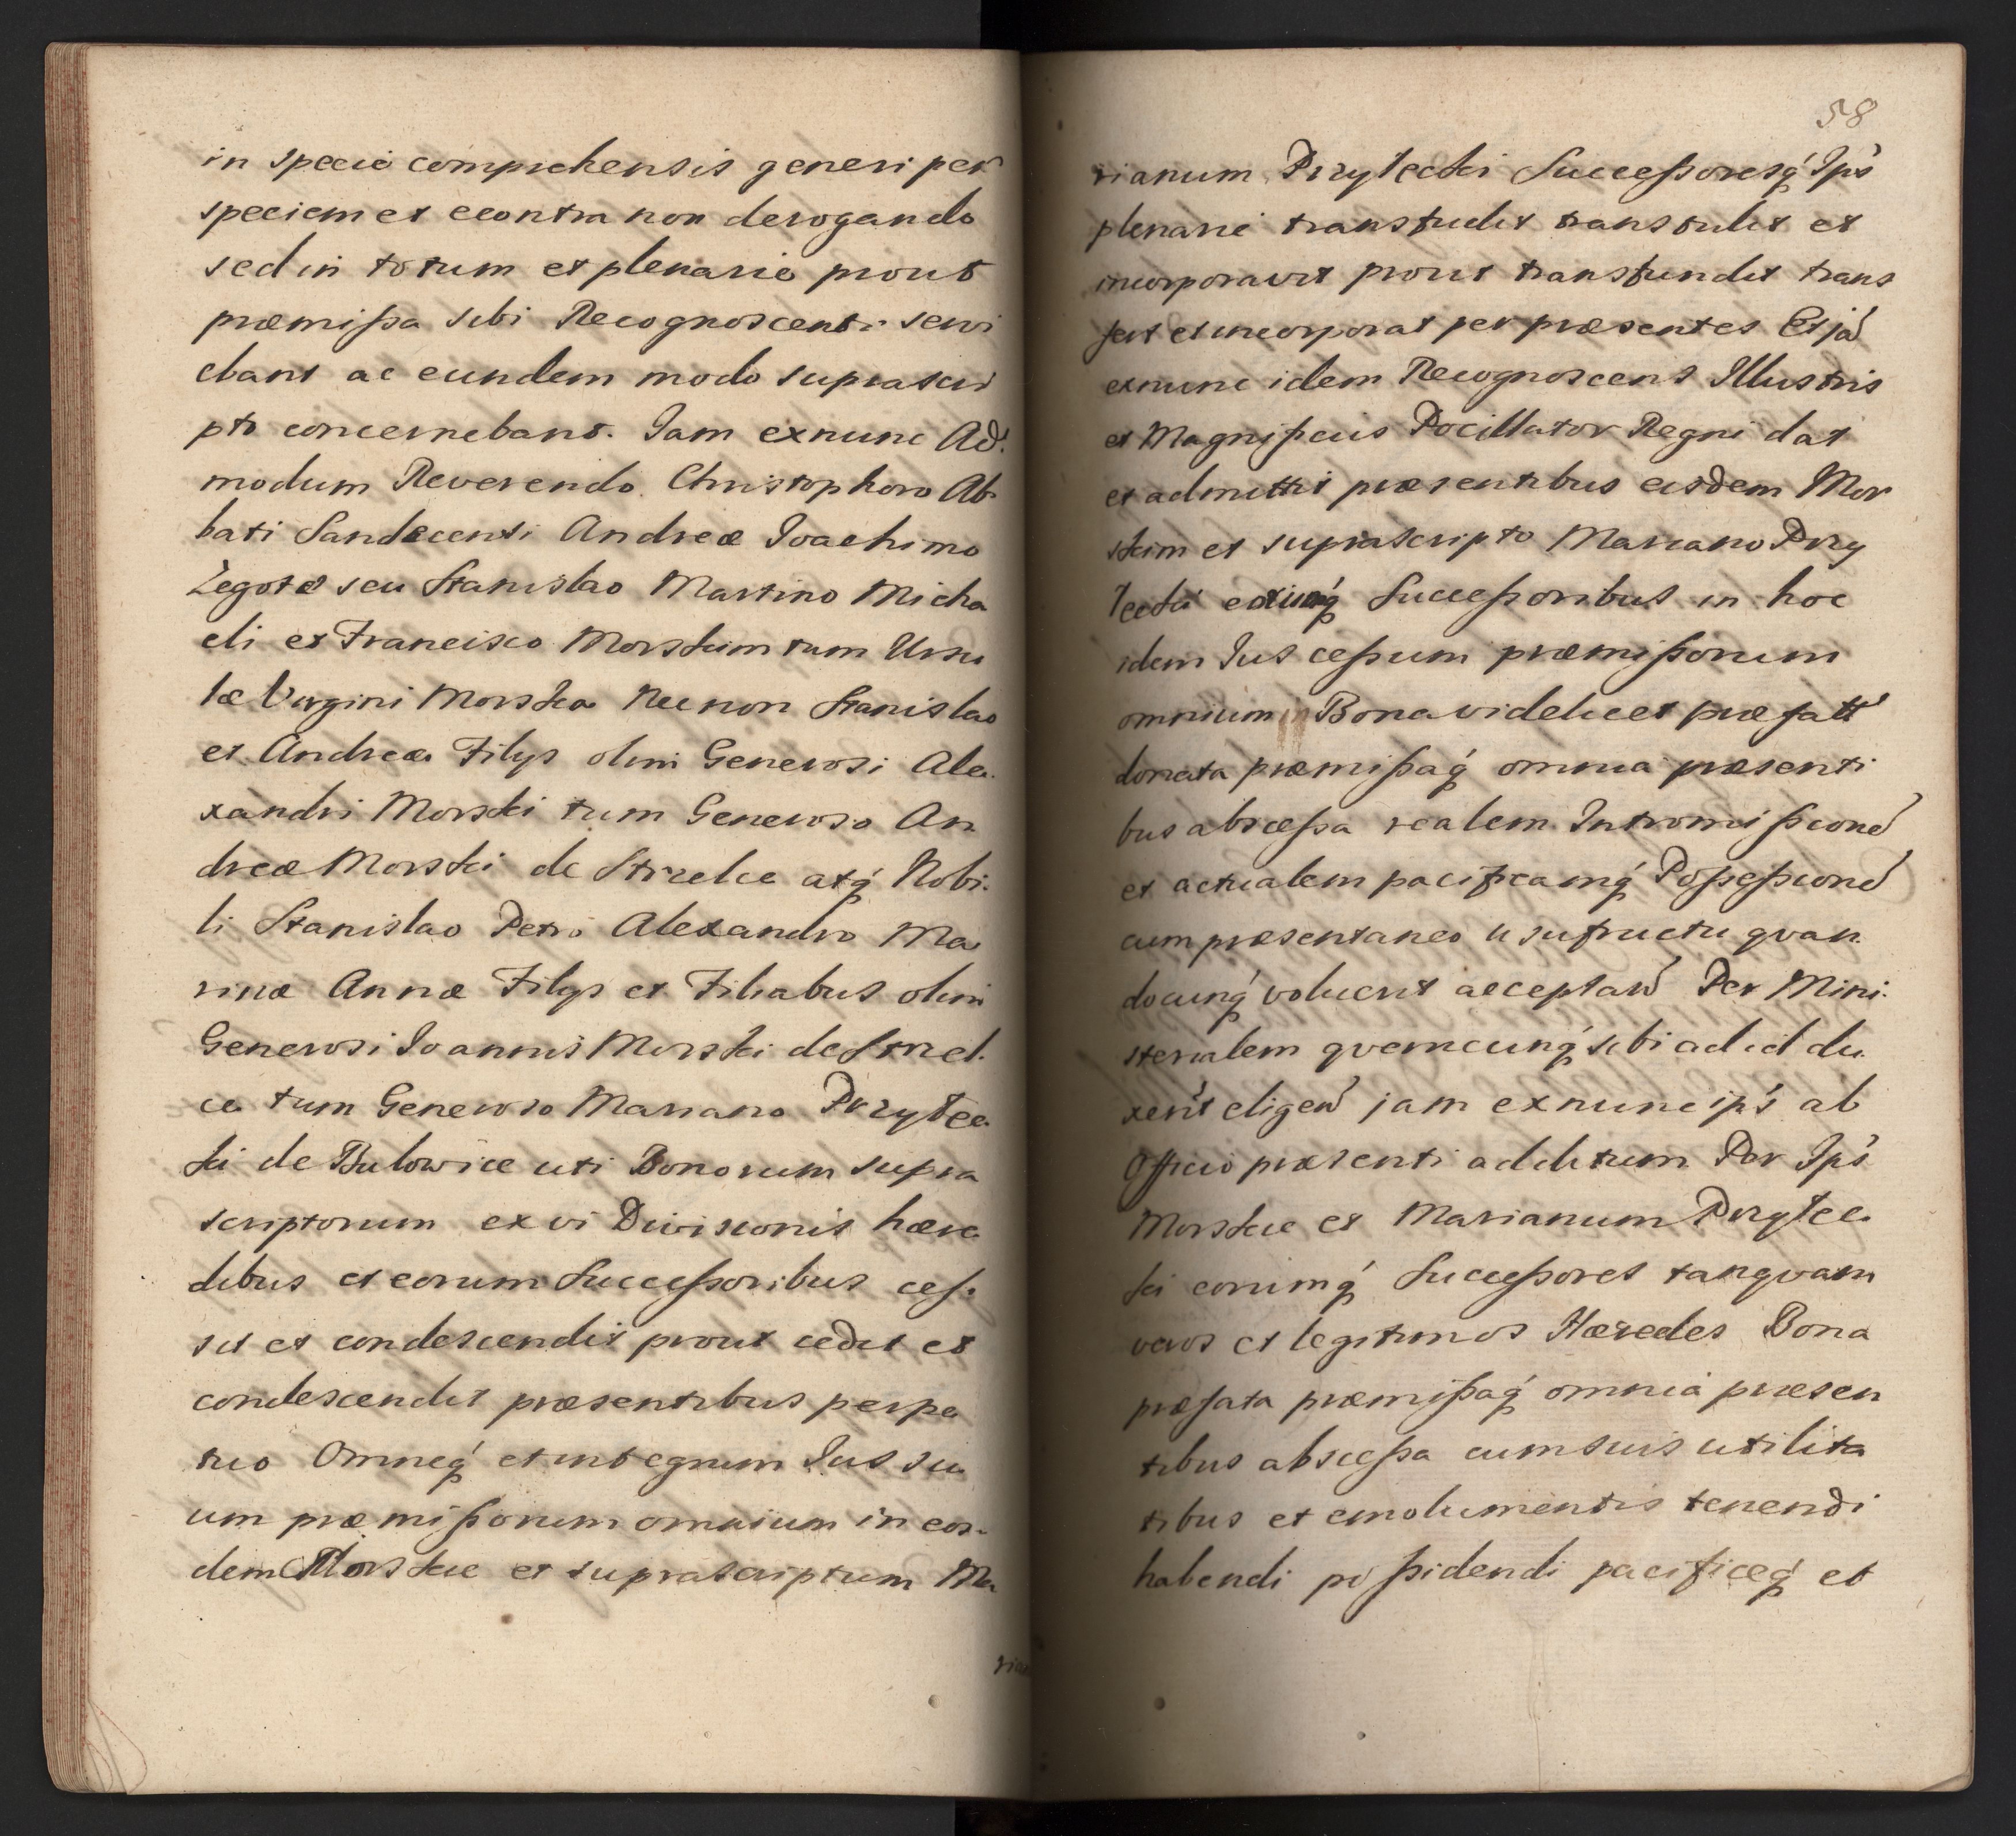 in specie comprehensis generi per
speciem et econtra non derogando
sed in totum et plenarie prout
præmißa sibi Recognoscenti servi
ebant ac eundem modo suprascri
pto concernebant. Iam exnunc Ad.
modum Reverendo Christophoro Ab
bati Sandecensi Andreæ Ioachimo
Zegotæ seu Stanislao Martino Micha
eli et Francisco Morskim tum Ursu
læ Virgini Morska Necnon Stanislao
et Andreæ Filys olim Generosi Ale.
xandri Morski tum Generoso An
dreæ Morski de Strzelce atq́ Nobi.
li Stanislao Petro Alexandro Ma
rinæ Annæ Filys et Filiabus olim
Generosi Ioannis Morski de Strzel.
ce tum Generoso Mariano Przyłec
ki de Bulowice uti Bonorum supra
scriptorum ex vi Divisionis hære
dibus et eorum Succeßoribus ceß.
sit et condescendit prout cedit et
condescendit præsentibus perpe
tuo Omneq́ et integrum Ius su
um præmißorum omnium in eos.
dem Morskie et suprascriptum Ma
rian
58
rianum Przyłecki Succeßoresq́ Ips
plenarie transfudit transtulit et
incorporavit prout transfundit trans
fert et incorporat per præsentes Et jã
exnunc idem Recognoscens Illustris
et Magnificus Pocillator Regni dat
et admittit præsentibus eisdem Mor
skim et suprascripto Mariano Przy
łecki eorumq́ Succeßoribus in hoc
idem Ius ceßum præmißorum
omnium in Bona videlicet præfatt
donata præmißaq́ omnia præsenti
bus absceßa realem Intromißionẽ
et actualem pacificamq́ Poßeßionẽ
cum præsentaneo usufructu qvan
docunq́ voluerit acceptarẽ Per Mini.
sterialem qvemcunq́ sibi ad id du
xerit eligerẽ jam exnunc ips ab
Officio præsenti additum Per Ips
Morskie et Marianum Przyłec
ki eorumq́ Succeßores tanqvam
veros et legitimos Hæredes Bona
præfata præmißaq́ omnia præsen
tibus absceßa cum suis utilita
tibus et emolumentis tenendi
habendi poßidendi pacificeq́ et